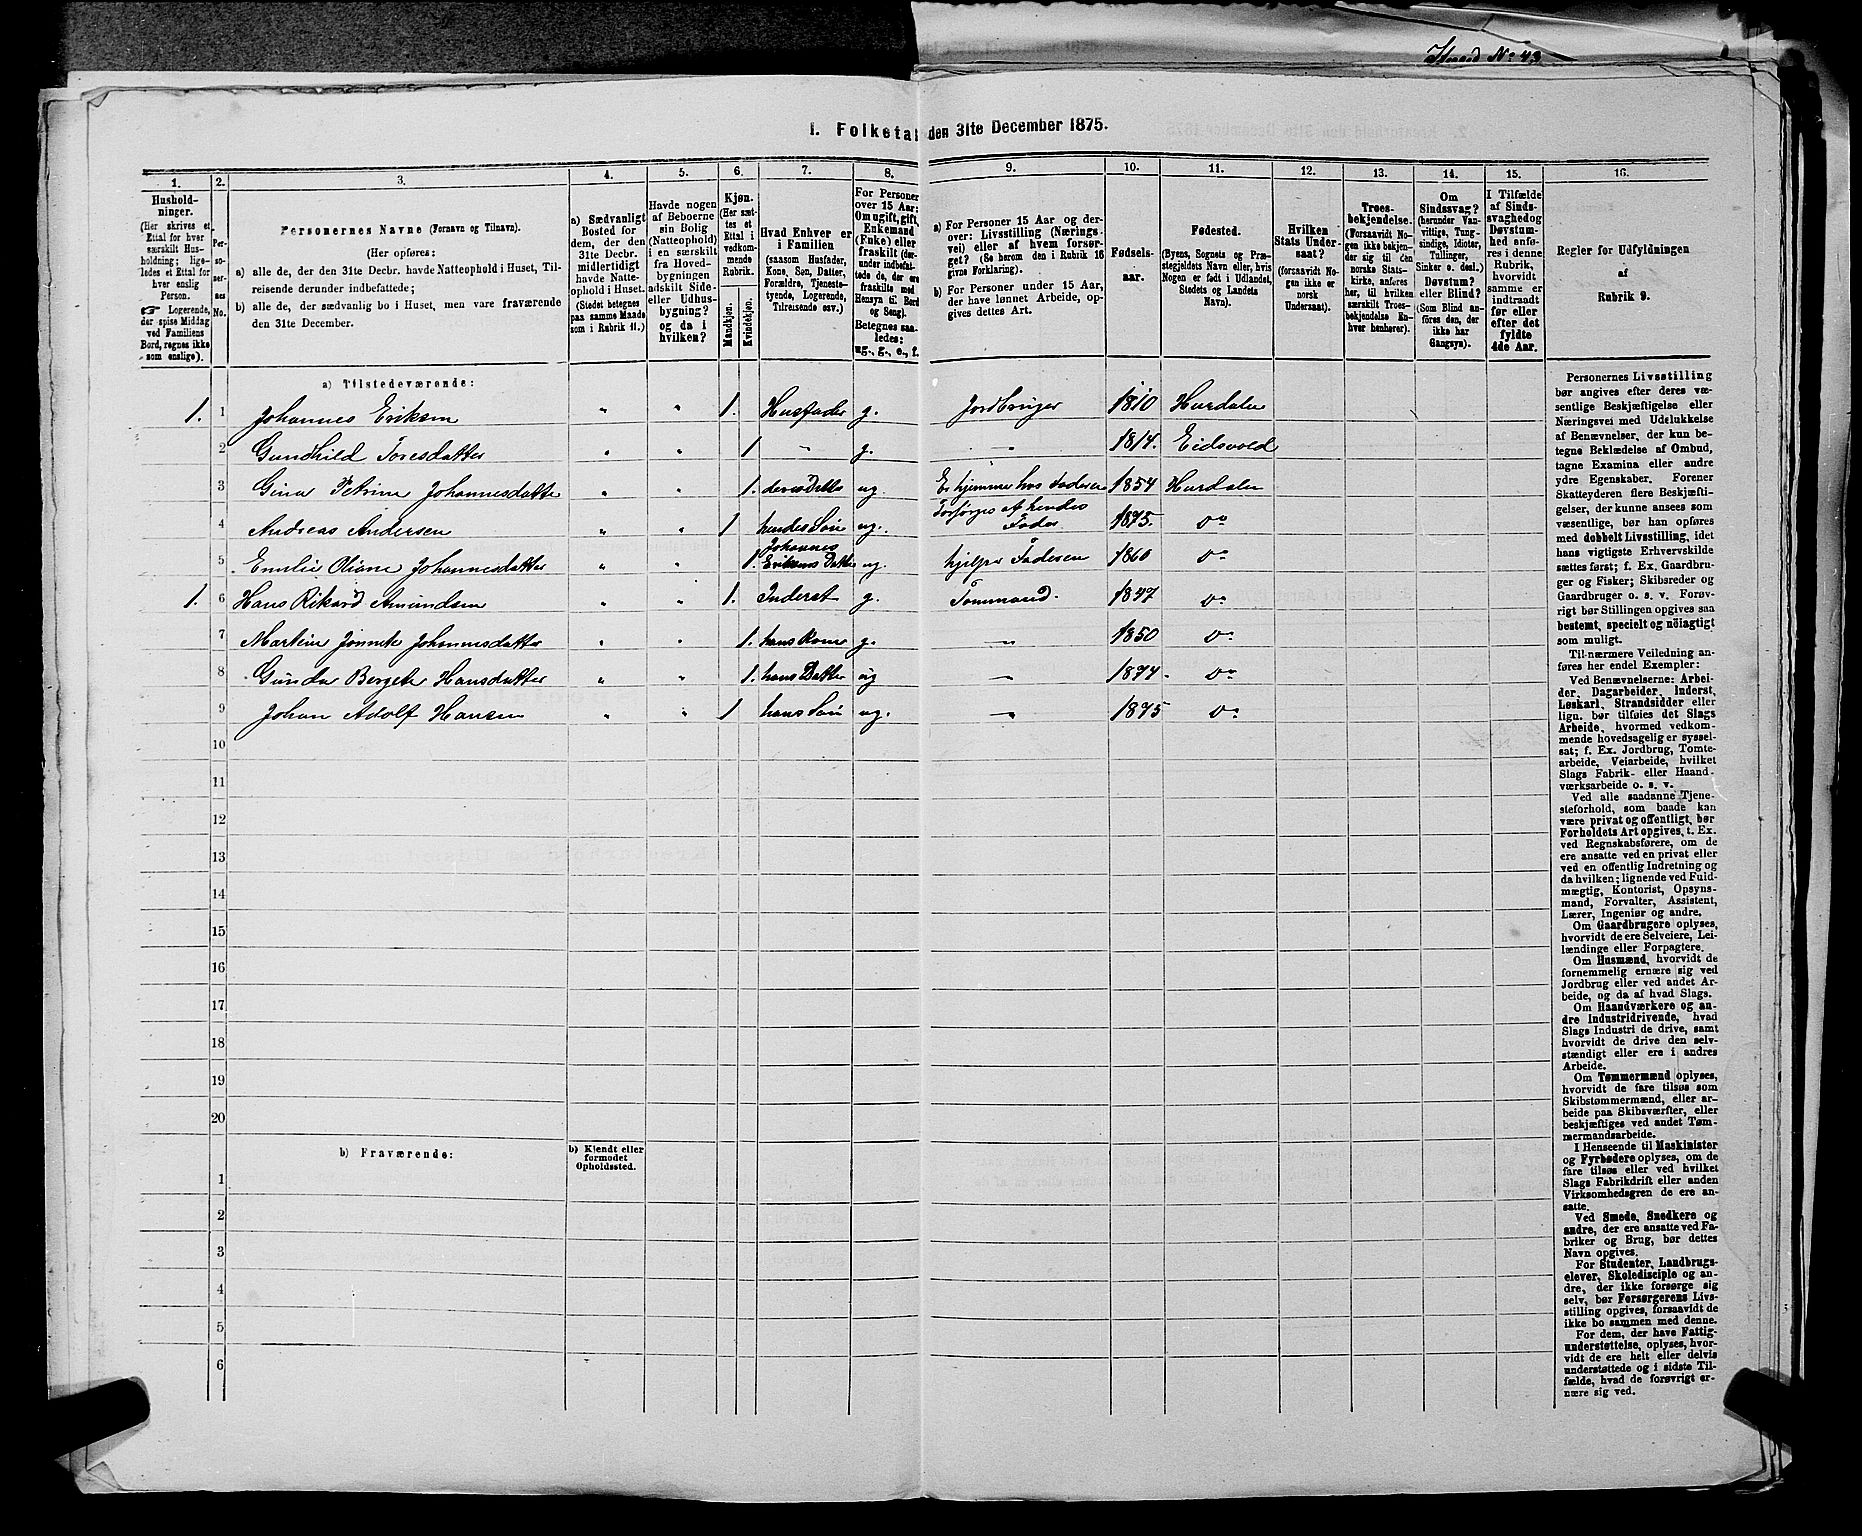 Huusd No 43
I. Folketal den 31te December 1875.
1. 2. 3. 4. 5. 6. 7. 8. 9. 10. 11. 12. 13. 14. 15. 16.
Hushold-
ninger.
(Her skrives et
Ettal for hver
særskilt Hus-
holdning; lige-
ledes et Ettal for
hver enslig
Person.
☞ Logerende,
der spise Middag
ved Familiens
Bord, regnes ikke
som enslige).
Per-
so-
ner-
nes
No.
Personernes Navne (Fornavn og Tilnavn).
(Her opføres:
a) alle de, der den 31te Decbr. havde Natteophold i Huset, Til-
reisende derunder indbefattede;
b) alle de, der sædvanlig bo i Huset, men vare fraværende
den 31te December.
a) Sædvanligt
Bosted for
dem, der den
31te Decbr.
midlertidigt
havde Natte-
ophold i Huset.
(Stedet betegnes
paa samme Maade
som i Rubrik 11.)
Havde nogen
af Beboerne
sin Bolig
(Natteophold)
i en særskilt
fra Hoved-
bygningen
adskilt Side-
eller Udhus-
bygning?
og da i
hvilken?
Kjøn.
(Her sæt-
tes et
Ettal i
vedkom-
mende
Rubrik.
Mandkjøn.
Kvindekjøn.
Hvad Enhver er
i Familien
(saasom Husfader,
Kone, Søn, Datter,
Forældre, Tjeneste-
tyende, Logerende,
Tilreisende osv.)
For Personer
over 15 Aar:
Om ugift, gift,
Enkemand
(Enke) eller
fraskilt (der-
under indbefat-
tede de, der ere
fraskilte med
Hensyn til Bord
og Seng).
Betegnes saa-
ledes:
ug., g., e., f.
a) For Personer 15 Aar og der-
over: Livsstilling (Nærings-
vei) eller af hvem forsør-
get? (Se herom den i Rubrik 16
givne Forklaring).
b) For Personer under 15 Aar,
der have lønnet Arbeide, op-
gives dettes Art.
Fødsels-
aar.
Fødested.
(Byens, Sognets og Præ-
stegjeldets Navn eller, hvis
Nogen er født i Udlandet,
Stedets og Landets
Navn).
Hvilken
Stats Under-
saat?
(forsaavidt No-
gen ikke er
norsk
Undersaat).
Troes-
bekjendelse.
(Forsaavidt No-
gen ikke bekjen-
der sig til den
norske Stats-
kirke, anføres
her, til hvilken
særskilt Troes-
bekjendelse En-
hver henhører).
Om
Sindssvag?
(herunder Van-
vittige, Tung-
sindige, Idioter,
Tullinger,
Sinker o. desl.)
Døvstum?
eller Blind?
(Som Blind an-
føres den, der
ikke har
Gangsyn).
I Tilfælde
af Sinds-
svaghed og
Døvstum-
hed anfø-
res i denne
Rubrik,
hvorvidt
samme er
indtraadt
før eller
efter det
fyldte
4de Aar.
Regler for Udfyldningen
af
Rubrik 9.
a) Tilstedeværende:
1. 1 Johannes Eriksen " " 1. Husfader g. Jordbruger 1810 Hurdalen
2 Gundhild Toresdatter " " 1 " g. " 1814. Eidsvold
3 Gina Petrine Johannesdatter " " 1. deres Datter ug Er hjemme hos Faderen 1854 Hurdalen
4 Andreas Andersen " " 1 hendes Søn ug. Forsørges af hendes Fader 1875. Do
5 Emilie Oliane Johannesdatter " " 1. Johannes Eriksens Datter ug. hjelper Faderen 1860 Do
1. 6 Hans Rikard Amundsen " " 1. Inderst g. Tømmermand. 1847 Do
7 Martine Jonnete Johannesdatter " " 1. hans Kone g. " 1850 Do
8 Gunda Bergete Hansdatter " " 1. hans Datter ug " 1874. Do
9 Johan Adolf Hansen " " 1 hans Søn ug. " 1875 Do
10
11
12
13
14
15
16
17
18
19
20
b) Fraværende:
b) Kjendt eller
formodet
Opholdssted.
1
2
3
4
5
6
Personernes Livsstilling
bør angives efter deres væ-
sentlige Beskjæftigelse eller
Næringsvei med Udelukkelse
af Benævnelser, der kun be-
tegne Beklædelse af Ombud,
tagne Examina eller andre
ydre Egenskaber. Forener
Skatteyderen flere Beskjæfti-
gelser, der kunne ansees som
væsentlige, bør han opføres
med dobbelt Livsstilling, idet
hans vigtigste Erhvervskilde
sættes først; f. Ex. Gaardbru-
ger og Fisker; Skibsreder og
Gaardbruger o. s. v. Forøv-
rigt bør Stillingen opgives saa
bestemt, specielt og nöiagtigt
som muligt.
Til nærmere Veiledning an-
føres her endel Exempler:
Ved Benævnelserne: Arbei-
der, Dagarbeider, Inderst,
Løskarl, Strandsidder eller
lign. bør tilføies det Slags
Arbeide, hvormed vedkom-
mende hovedsagelig er syssel-
sat; f. Ex. Jordbrug, Tomte-
arbeide, Veiarbeide, hvilket
Slags Fabrik- eller Haand-
værksarbeide o. s. v.
Ved alle saadanne Tjene-
steforhold, som baade kan
være privat og offentligt, bør
Forholdets Art opgives, t. Ex.
ved Regnskabsførere, om de
ere ansatte ved en privat eller
ved en offentlig Indretning og
da hvilken; lignende ved Fuld-
mægtig, Kontorist, Opsyns-
mand, Forvalter, Assistent,
Lærer, Ingeniør og andre.
Om Gaardbrugere oplyses,
hvorvidt de ere Selveiere, Lei-
lændinge eller Forpagtere.
Om Husmænd, hvorvidt de
fornemmelig ernære sig ved
Jordbrug eller ved andet Ar-
beide, og da af hvad Slags.
Om Haandværkere og an-
dre Industridrivende, hvad
Slags Industri de drive, samt
hvorvidt de drive den selv-
stændigt eller ere i andres
Arbeide.
Om Tømmermænd oplyses,
hvorvidt de fare tilsøs som
Skibstømmermænd, eller ar-
beide paa Skibsværfter, eller
beskjæftiges ved andet Tøm-
mermandsarbeide.
I Henseende til Maskinister
og Fyrbødere oplyses, om de
fare tilsøs eller ved hvilket
Slags Fabrikdrift eller anden
Virksomhedsgren de ere an-
satte.
Ved Smede, Snedkere og
andre, der ere ansatte ved Fa-
briker og Brug, bør dettes
Navn opgives.
For Studenter, Landbrugs-
elever, Skoledisciple og an-
dre, der ikke forsørge sig
selv, bør Forsørgerens Livs-
stilling opgives, forsaavidt de
ikke bo sammen med denne.
For dem, der have Fattig-
understøttelse, oplyses, hvor-
vidt de ere helt eller delvis
understøttede og i sidste Til-
fælde, hvad de forøvrigt er-
nære sig ved.